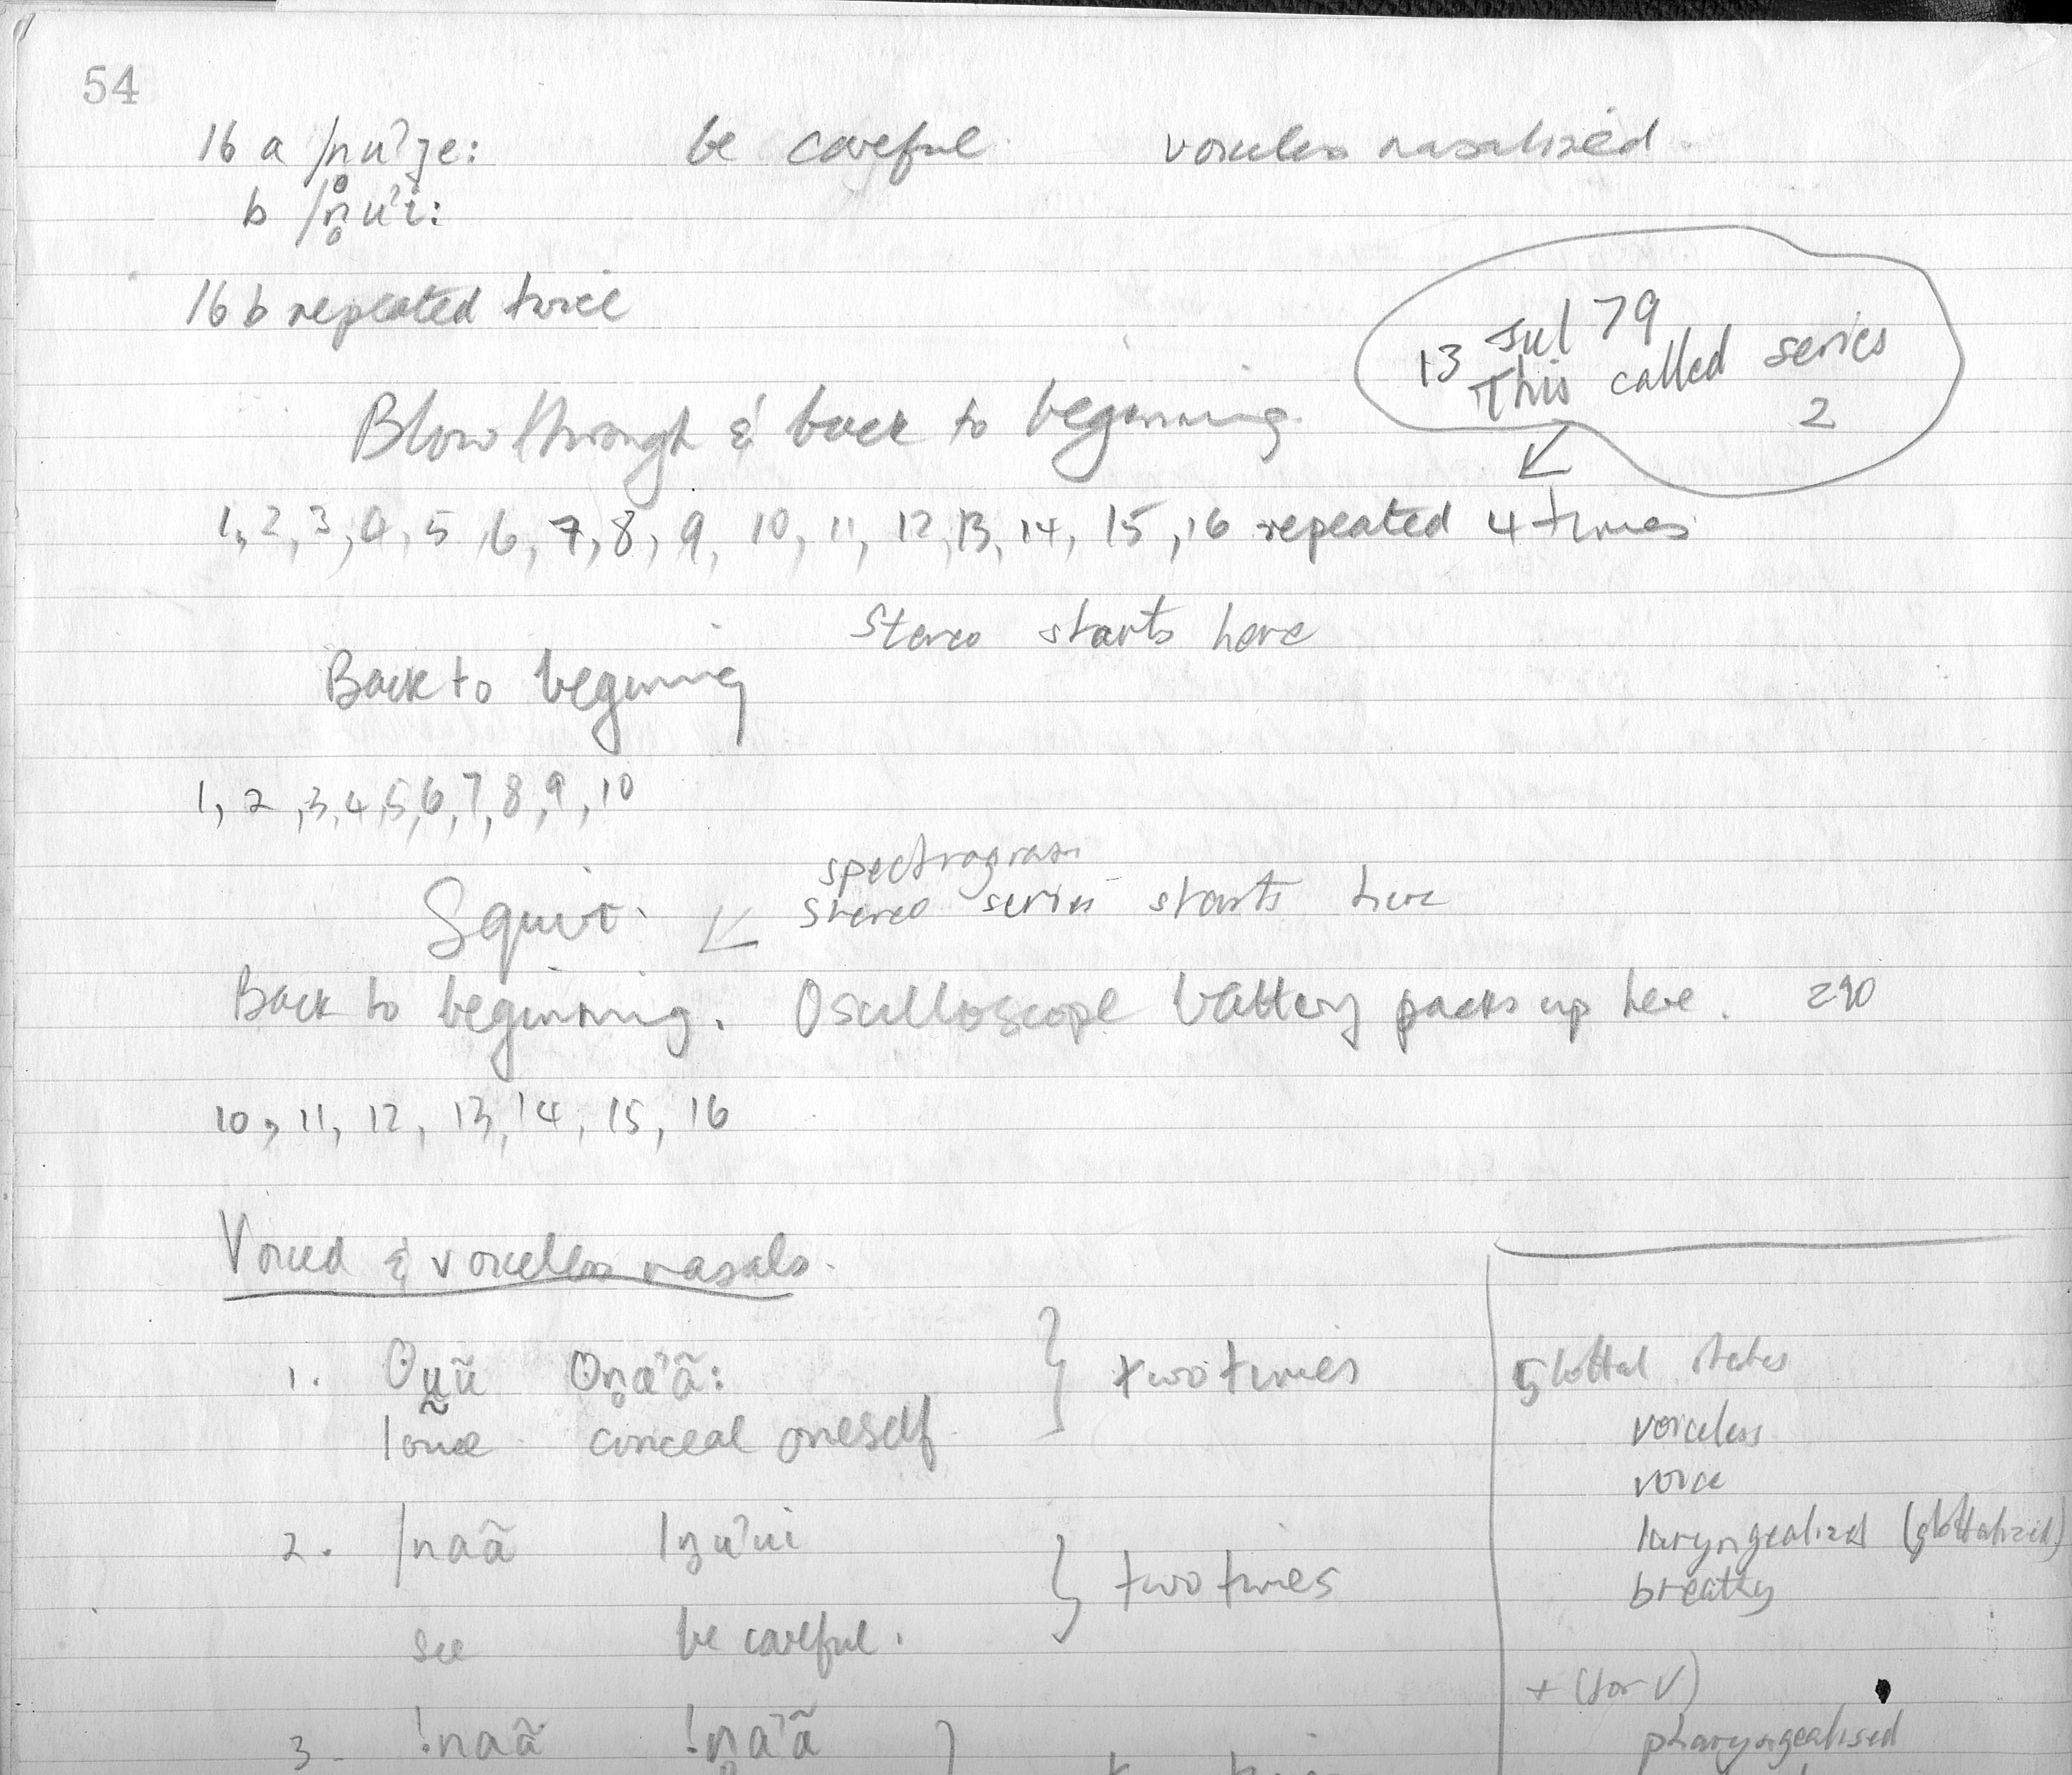 54
16 a /n̥uʔje: be careful voiceless nasalized.
b /n̥uʔi:
16 b repeated twice
13 Jul 79
This called series
2
Blow through & back to beginning.
1, 2, 3, 4, 5, 6, 7, 8, 9, 10, 11, 12, 13, 14, 15, 16 repeated 4 times
Stereo starts here
Back to beginning
1, 2, 3, 4, 5, 6, 7, 8, 9, 10
spectrogram
Squirt. stereo series starts here
Back to beginning. Oscilloscope battery packs up here. 290
10, 11, 12, 13, 14, 15, 16
Voiced & voiceless nasals.
1. two times
conceal oneself
2. /naã two times
see be careful.
3. !naã !n̥aʔã
Glottal states
voiceless
voice
laryngealized (glottalized)
breathy
+ (for V)
pharyngealised